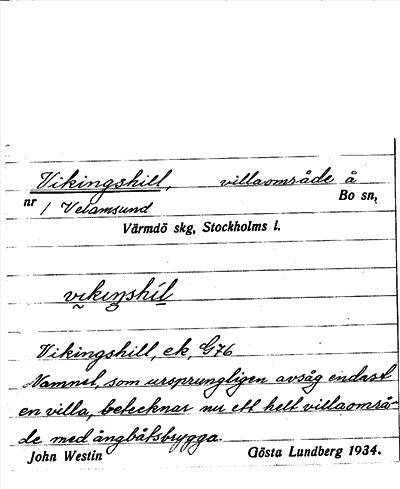 Vikingshill, villaområde å
nr 1 Velamsund Bo sn,
Värmdö skg, Stockholms l.
vikiŋshíl
Vikingshill, ek, G76
Namnet, som ursprungligen avsåg endast
en villa, betecknar nu ett helt villaområ-
de med ångbåtsbrygga.
John Westin Gösta Lundberg 1934.